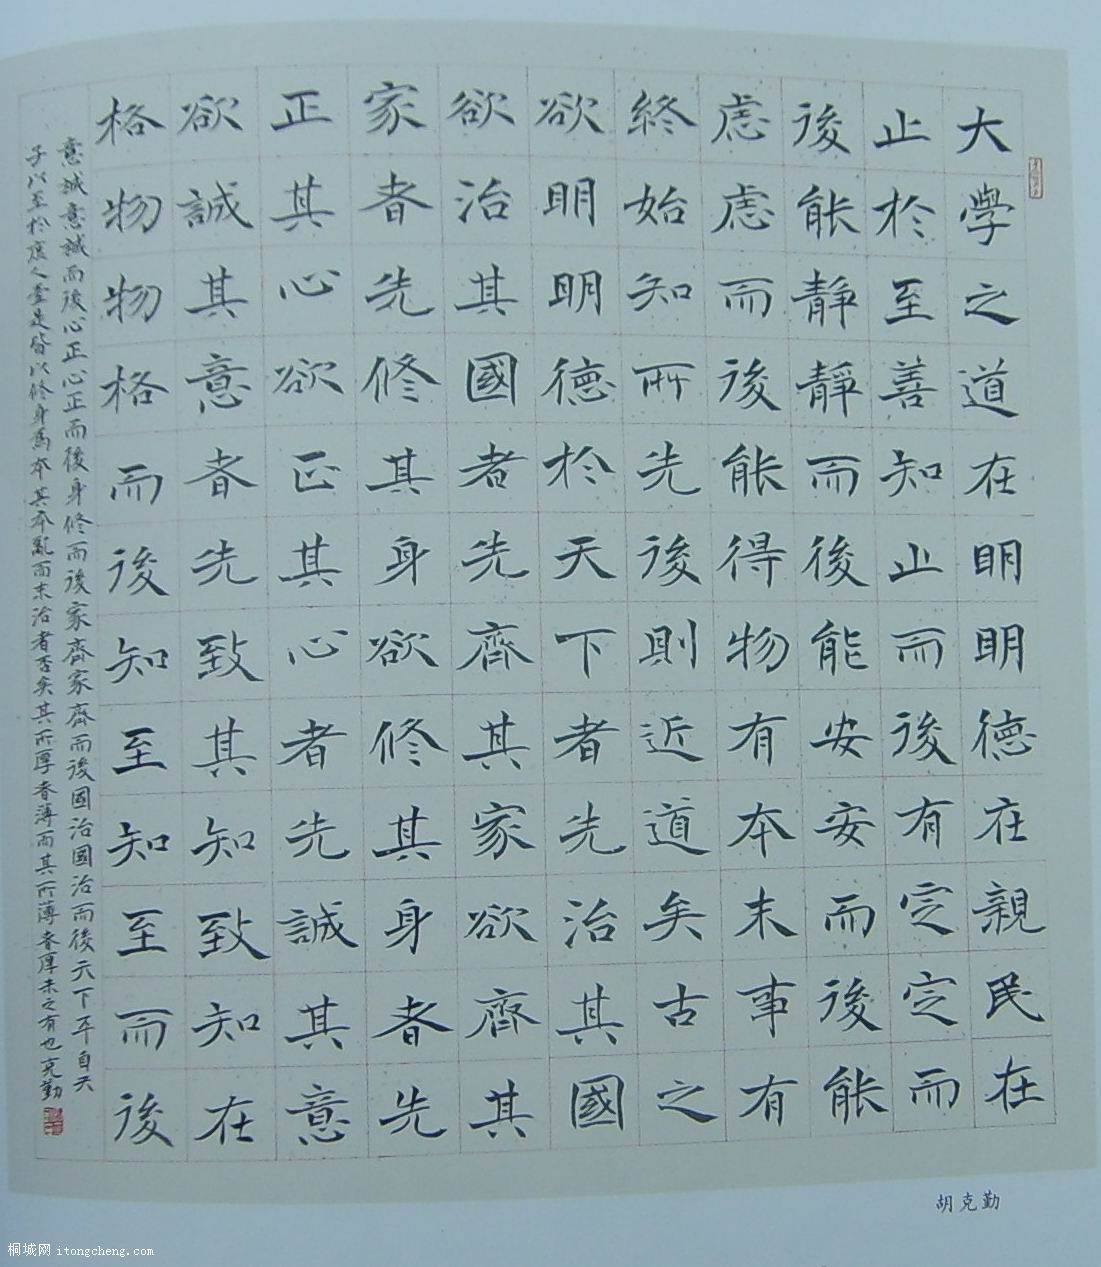 大學之道在明明德在親民在
止於至善知止而後有定定而
後能靜靜而後能安安而後能
慮慮而後能得物有本末事有
終始知所先後則近道矣古之
欲明明德於天下者先治其國
欲治其國者先齊其家欲齊其
家者先修其身欲修其身者先
正其心欲正其心者先誠其意
欲誠其意者先致其知致知在
格物物格而後知至知至而後
意誠意誠而後心正心正而後身修而後家齊家齊而後國治國治而後天下平自天
子以至於庶人壹是皆以修身為本其本亂而末治者否矣其所厚者薄而其所薄者厚未之有也克勤
胡克勤
桐城网 itongcheng.com